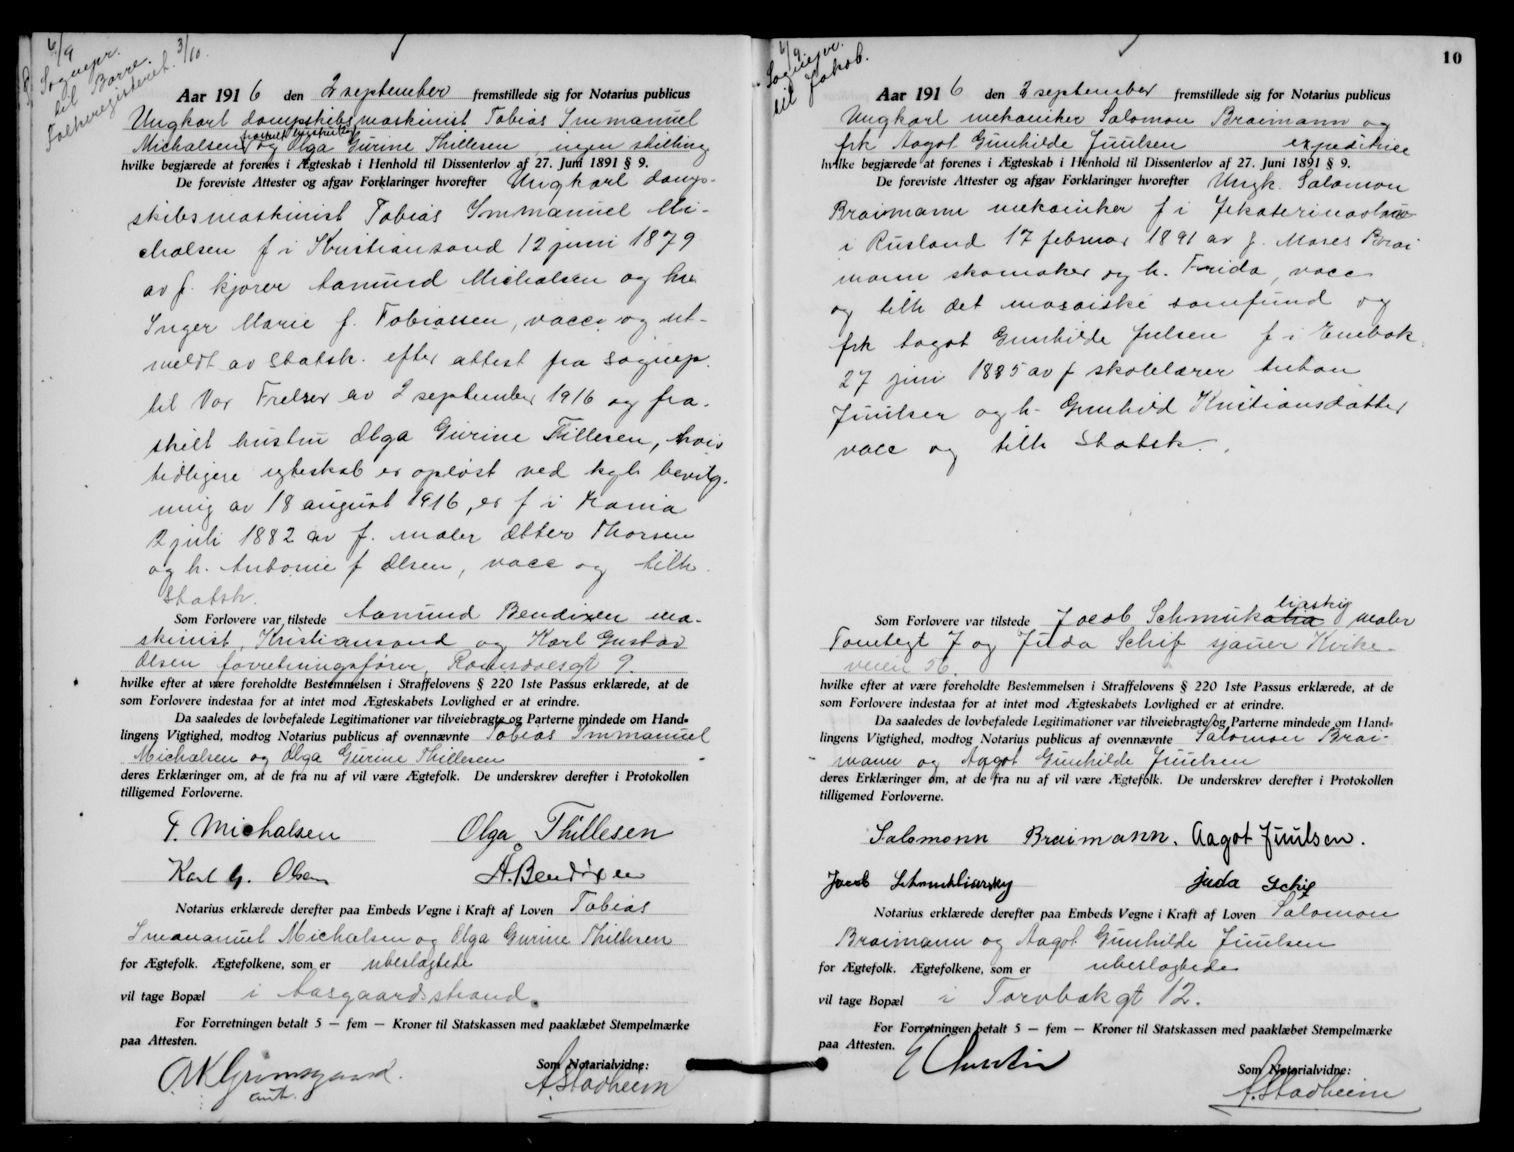 6/9
Sognepr.
til Borre.
Folkeregisteret. 3/10.
Aar 1916 den 2 september fremstillede sig for Notarius publicus
Ungkarl dampskibsmaskinist Tobias Immanuel
fraskilt hustru
Michalsen og Olga Gurine Thillesen, ingen stilling
hvilke begjærede at forenes i Ægteskab i Henhold til Dissenterlov af 27. Juni 1891 § 9.
De foreviste Attester og afgav Forklaringer hvorefter Ungkarl damp-
skibsmaskinist Tobias Immanuel Mi-
chalsen f i Kristiansand 12 juni 1879
av f. kjører Aamund Michalsen og hu
Inger Marie f. Tobiassen, vacc og ut-
meldt av Statsk. efter attest fra Sognep.
til Vor Frelser av 2 september 1916 og fra-
skilt hustru Olga Gurine Tillesen, hvis
tidligere egteskab er opløst ved kgl. bevilg-
ning av 18 august 1916, er f i Krania
2 juli 1882 av f. maler Otter Thorsen
og h. Antonie f Olsen, vacc og tilh
Statsk.
Som Forlovere var tilstede Aamund Bendixen ma-
skinist, Kristiansand og Karl Gustav
Olsen forretningsfører, Romsdalsgt 9
hvilke efter at være foreholdte Bestemmelsen i Straffelovens § 220 1ste Passus erklærede, at de
som Forlovere indestaa for at intet mod Ægteskabets Lovlighed er at erindre.
Da saaledes de lovbefalede Legitimationer var tilveiebragte og Parterne mindede om Hand-
lingens Vigtighed, modtog Notarius publicus af ovennævnte Tobias Immanuel
Michalsen og Olga Gurine Thillesen
deres Erklæringer om, at de fra nu af vil være Ægtefolk. De underskrev derefter i Protokollen
tilligemed Forloverne.
T. Michalsen Olga Thillesen
Karl G. Olsen Å. Bendixen
Notarius erklærede derefter paa Embeds Vegne i Kraft af Loven Tobias
Imananuel Michalsen og Olga Gurine Thillesen
for Ægtefolk. Ægtefolkene, som er ubeslægtede
vil tage Bopæl i Aasgaardsstrand.
For Forretningen betalt 5 — fem — Kroner til Statskassen med paaklæbet Stempelmærke
paa Attesten.
Som Notarialvidne:
A. Stadheim
6/9.
Sognepr.
til Jakob.
10
Aar 1916 den 2 september fremstillede sig for Notarius publicus
Ungkarl mekaniker Salomon Braimann og
frk Aagot Gunhilde Juulsen expeditrice
hvilke begjærede at forenes i Ægteskab i Henhold til Dissenterlov af 27. Juni 1891 § 9.
De foreviste Attester og afgav Forklaringer hvorefter Ungk. Salomon
Braimann mekaniker f i Jekaterinoslav
i Rusland 17 februar 1891 av f. Moses Brai
mann skomaker og h. Frida, vacc
og tilh det mosaiske samfund og
frk Aagot Gunhilde Julsen f i Enebak
27 juni 1885 av f skolelærer Anton
Juulsen og h. Gunhild Kristiansdatter
vacc og tilh Statsk.
Som Forlovere var tilstede Jacob Schmuk liarsky maler
Tomtegt 7 og Juda Schif sjauer Kirke-
veien 56.
hvilke efter at være foreholdte Bestemmelsen i Straffelovens § 220 1ste Passus erklærede, at de
som Forlovere indestaa for at intet mod Ægteskabets Lovlighed er at erindre.
Da saaledes de lovbefalede Legitimationer var tilveiebragte og Parterne mindede om Hand-
lingens Vigtighed, modtog Notarius publicus af ovennævnte Salomon Brai-
mann og Aagot Gunhilde Juulsen
deres Erklæringer om, at de fra nu af vil være Ægtefolk. De underskrev derefter i Protokollen
tilligemed Forloverne.
Salomonn Braimann. Aagot Juulsen.
Jacob Schmukliarsky Juda Schif
Notarius erklærede derefter paa Embeds Vegne i Kraft af Loven Salomon
Braimann og Aagot Gunhilde Juulsen
for Ægtefolk. Ægtefolkene, som er ubeslagtede
vil tage Bopæl i Torvbakgt 12.
For Forretningen betalt 5 — fem — Kroner til Statskassen med paaklæbet Stempelmærke
paa Attesten.
Som Notarialvidne:
A. Stadheim